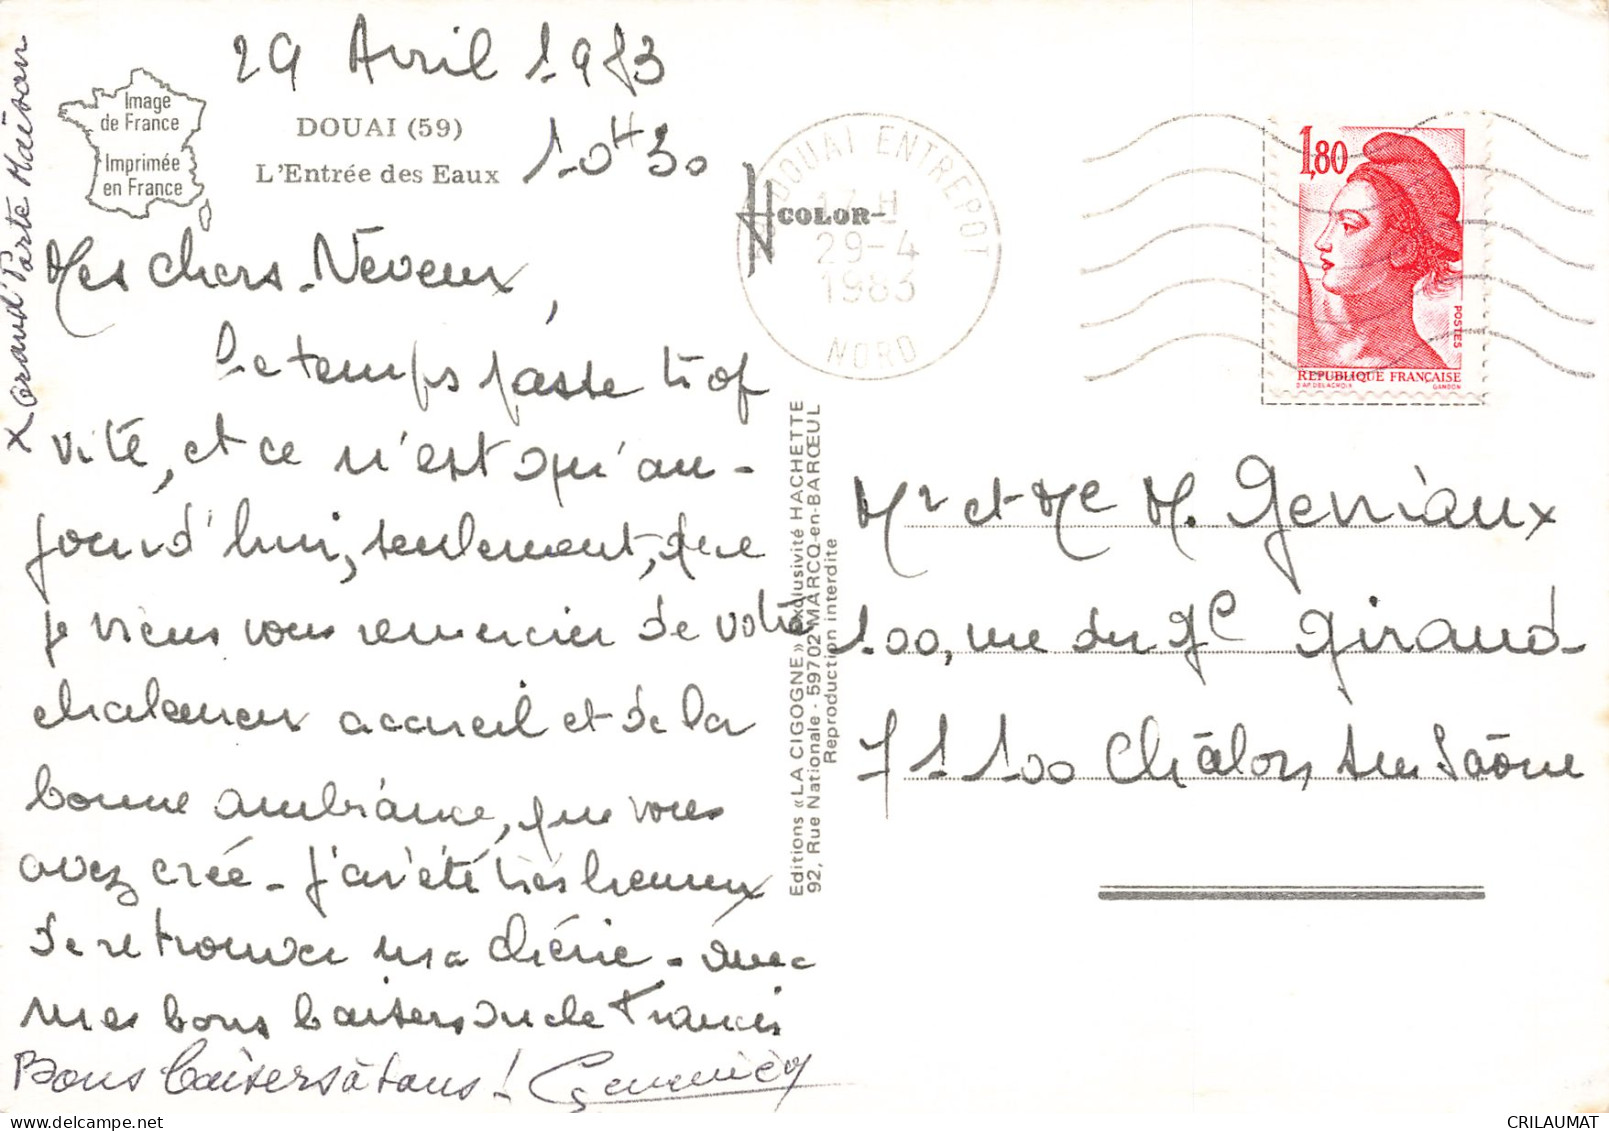 29 Avril 1983
10H30
Image
de France
Imprimée
en France
DOUAI (59)
L'Entrée des Eaux
COLOR
DOUAI ENTREPOT
17 H
29-4
1983
NORD
1,80
POSTES
REPUBLIQUE FRANÇAISE
D'AP. DELACROIX GANDON
Mes chers Neveux,
Le temps passe trop
vite, et ce n'est qu'au-
jourd'hui, seulement, que
je viens vous remercier de votre
chaleureux accueil et de la
bonne ambiance, que vous
avez créé - J'ai été très heureux
de retrouver ma chérie -
mes bons baisers oncle Francis
Bons baisers à tous !
x Grand' Porte Maison
Editions «LA CIGOGNE» exclusivité HACHETTE
92, Rue Nationale - 59702 MARCQ-en-BARŒUL
Reproduction interdite
Mr et Me M. Geniaux
100, rue du Gl Giraud-
71100 Châlon sur Saône
CRILAUMAT